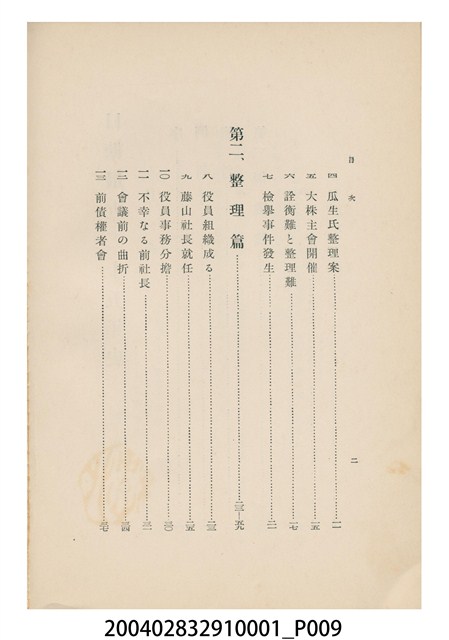 目次
四 瓜生氏整理案……一一
五 大株主會開催……一五
六 詮衡難と整理難……一七
七 檢擧事件發生……二一
第二、整理篇……二三—五九
八 役員組織成る……二三
九 藤山社長就任……二五
一〇 役員事務分擔……三〇
一一 不幸なる前社長……三一
一二 會議前の曲折……三四
一三 前債權者會……三七
二
200402832910001_P009